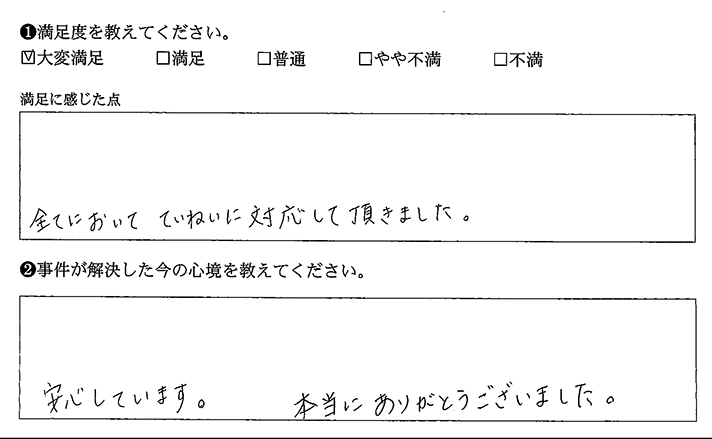 ❶満足度を教えてください。
☑大変満足 □満足 □普通 □やや不満 □不満
満足に感じた点
全てにおいて ていねいに対応して頂きました。
❷事件が解決した今の心境を教えてください。
安心しています。 本当にありがとうございました。